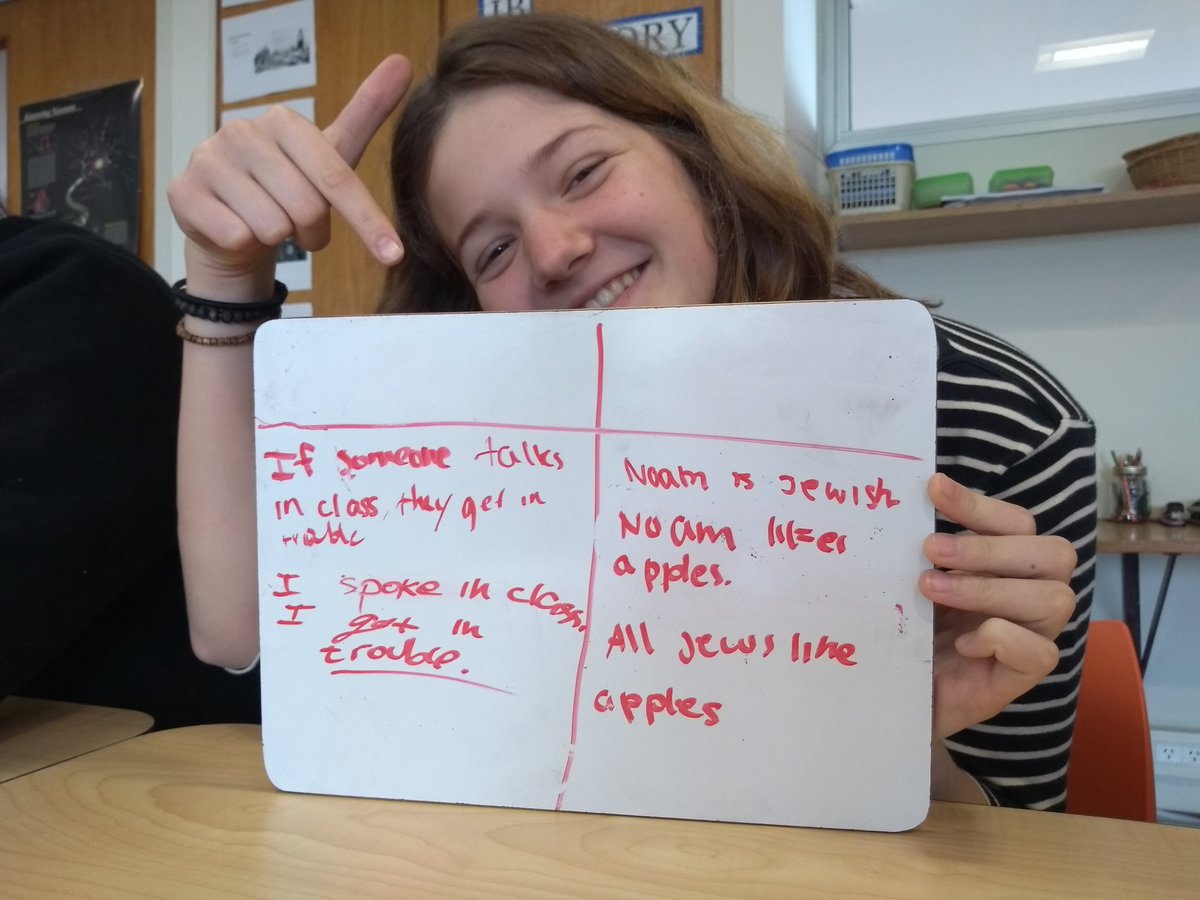 IB
ORY
If someone talks
in class, they get in
trouble
I spoke in class.
I get in
trouble.
Noam is Jewish
Noam likes
apples.
All Jews like
apples